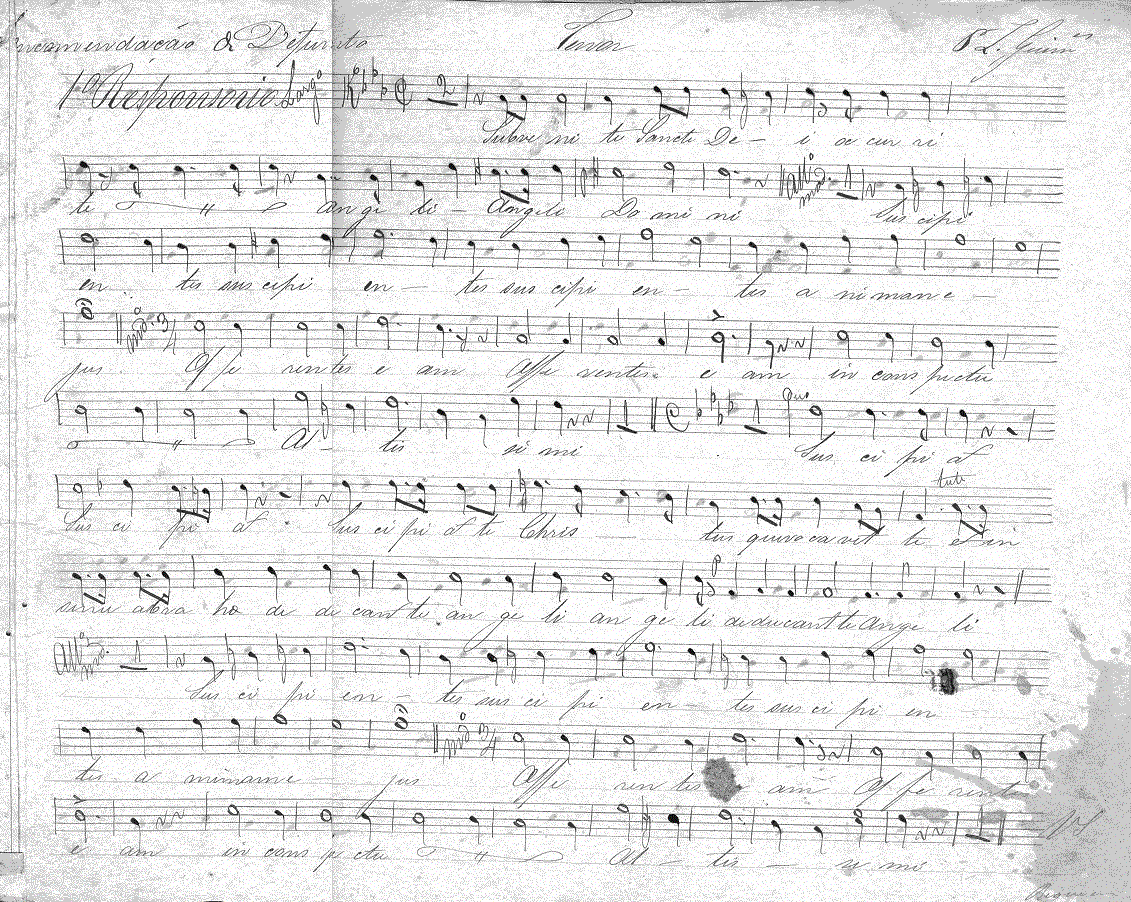 Encomendação de Defunto Tenor P L. Guimes
1º Responsorio Largo
Subve ni te Sancti De - i o cur ri
te Ange li - Angeli Do mi ni Allº modº Sus cipi
en tes sus cipi en - tes sus cipi en - tes a nimam e -
jus . modº 3/4 Offe rentes e am Offe rentes e am in cons pectu
Al - tis si mi Duo Sus ci pi at
tuti
Sus ci pi at Sus ci pi at te Chris tus qui vo ca vit te et in
sinu abra ha de du cant te an ge li an ge li deducant te Ange li
Allº modº Sus ci pi en - tes sus ci pi en - tes sus ci pi en
tes a nimam e jus modº 3/4 Offe ren tes e am Of fe rent
e am in cons pe ctu Al - tis - si mi VS
Requiem